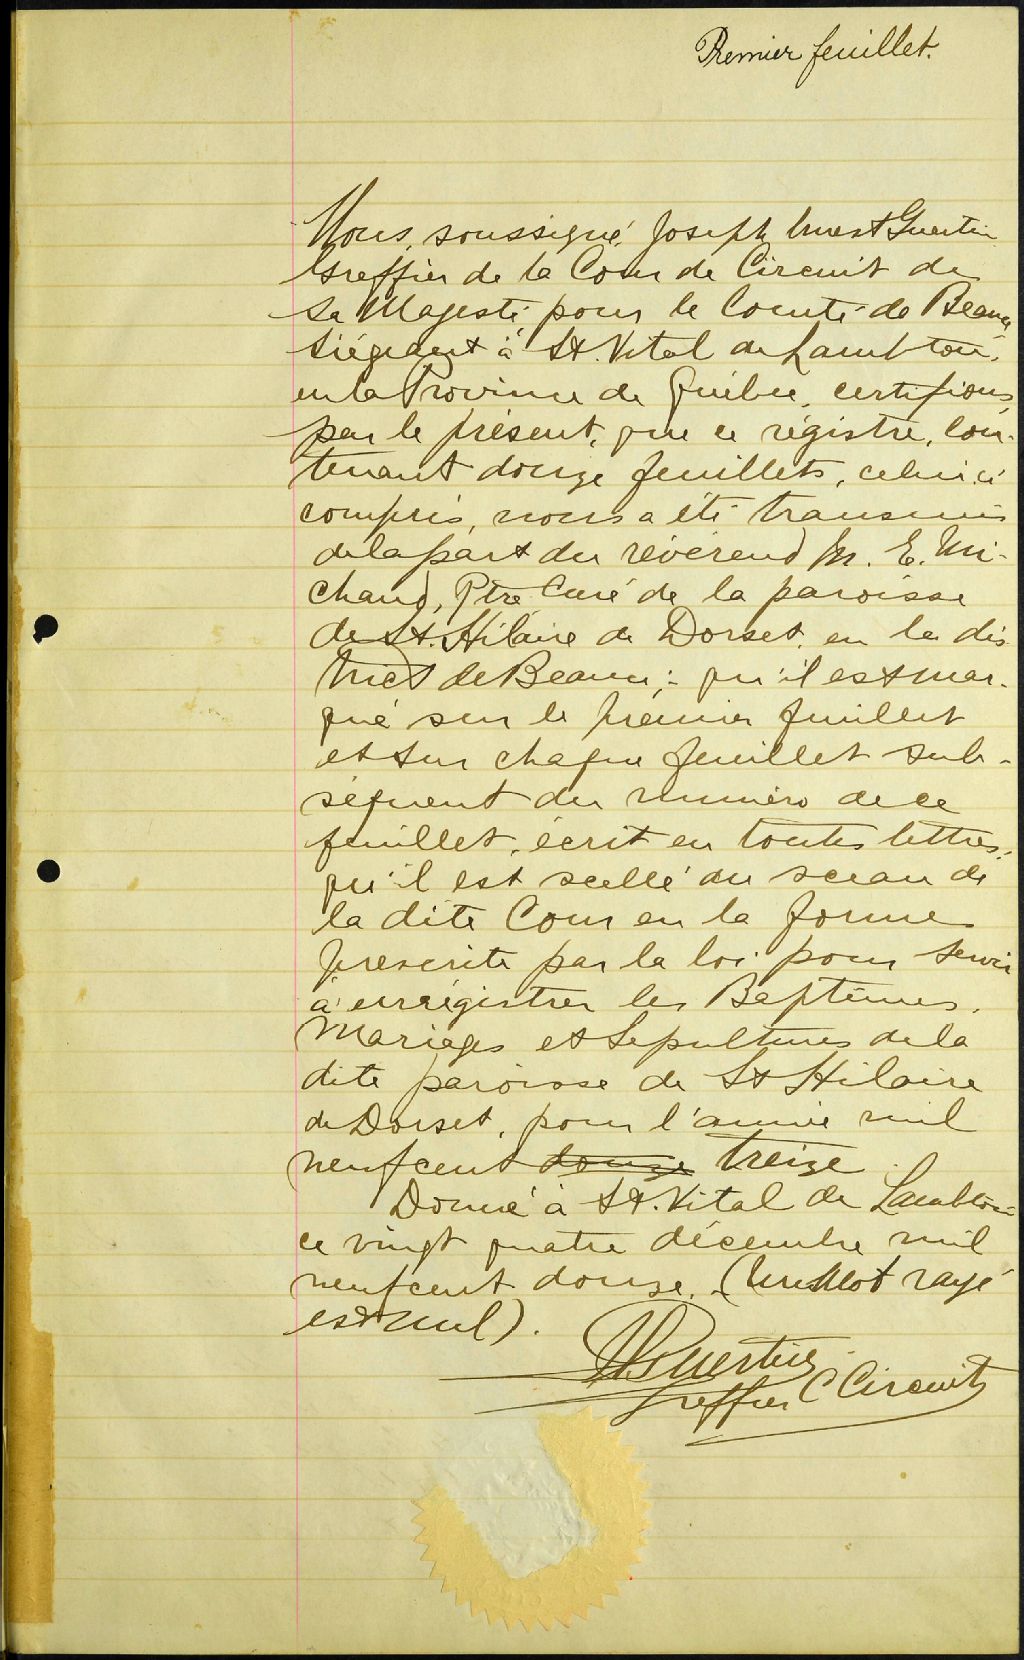 Premier feuillet.
Nous, soussigné, Joseph Guertin
Greffier de la Cour de Circuit de
Sa Majesté, pour le Comté de Beauce
Siégeant à St. Vital de Lambton,
en la Province de Québec, certifions
par le présent, que ce régistre, con-
tenant douze feuillets, celui ci
compris, nous a été transmis
de la part du révérend M. E. Mi-
chaud, Ptre Curé de la paroisse
de St. Hilaire de Dorset, en le dis
trict de Beauce; qu'il est mar-
qué sur le premier feuillet
et sur chaque feuillet sub-
séquent du numéro de ce
feuillet, écrit en toutes lettres,
qu'il est scellé du sceau de
la dite Cour en la forme
prescrite par la loi pour servir
à enrégistrer les Baptêmes,
Mariages et Sépultures de la
dite paroisse de St Hilaire
de Dorset, pour l'année mil
neuf cent douze treize
Donné à St. Vital de Lambton
ce vingt quatre décembre mil
neuf cent douze. (Un Mot rayé
est nul).
Guertin
Greffier C Circuit